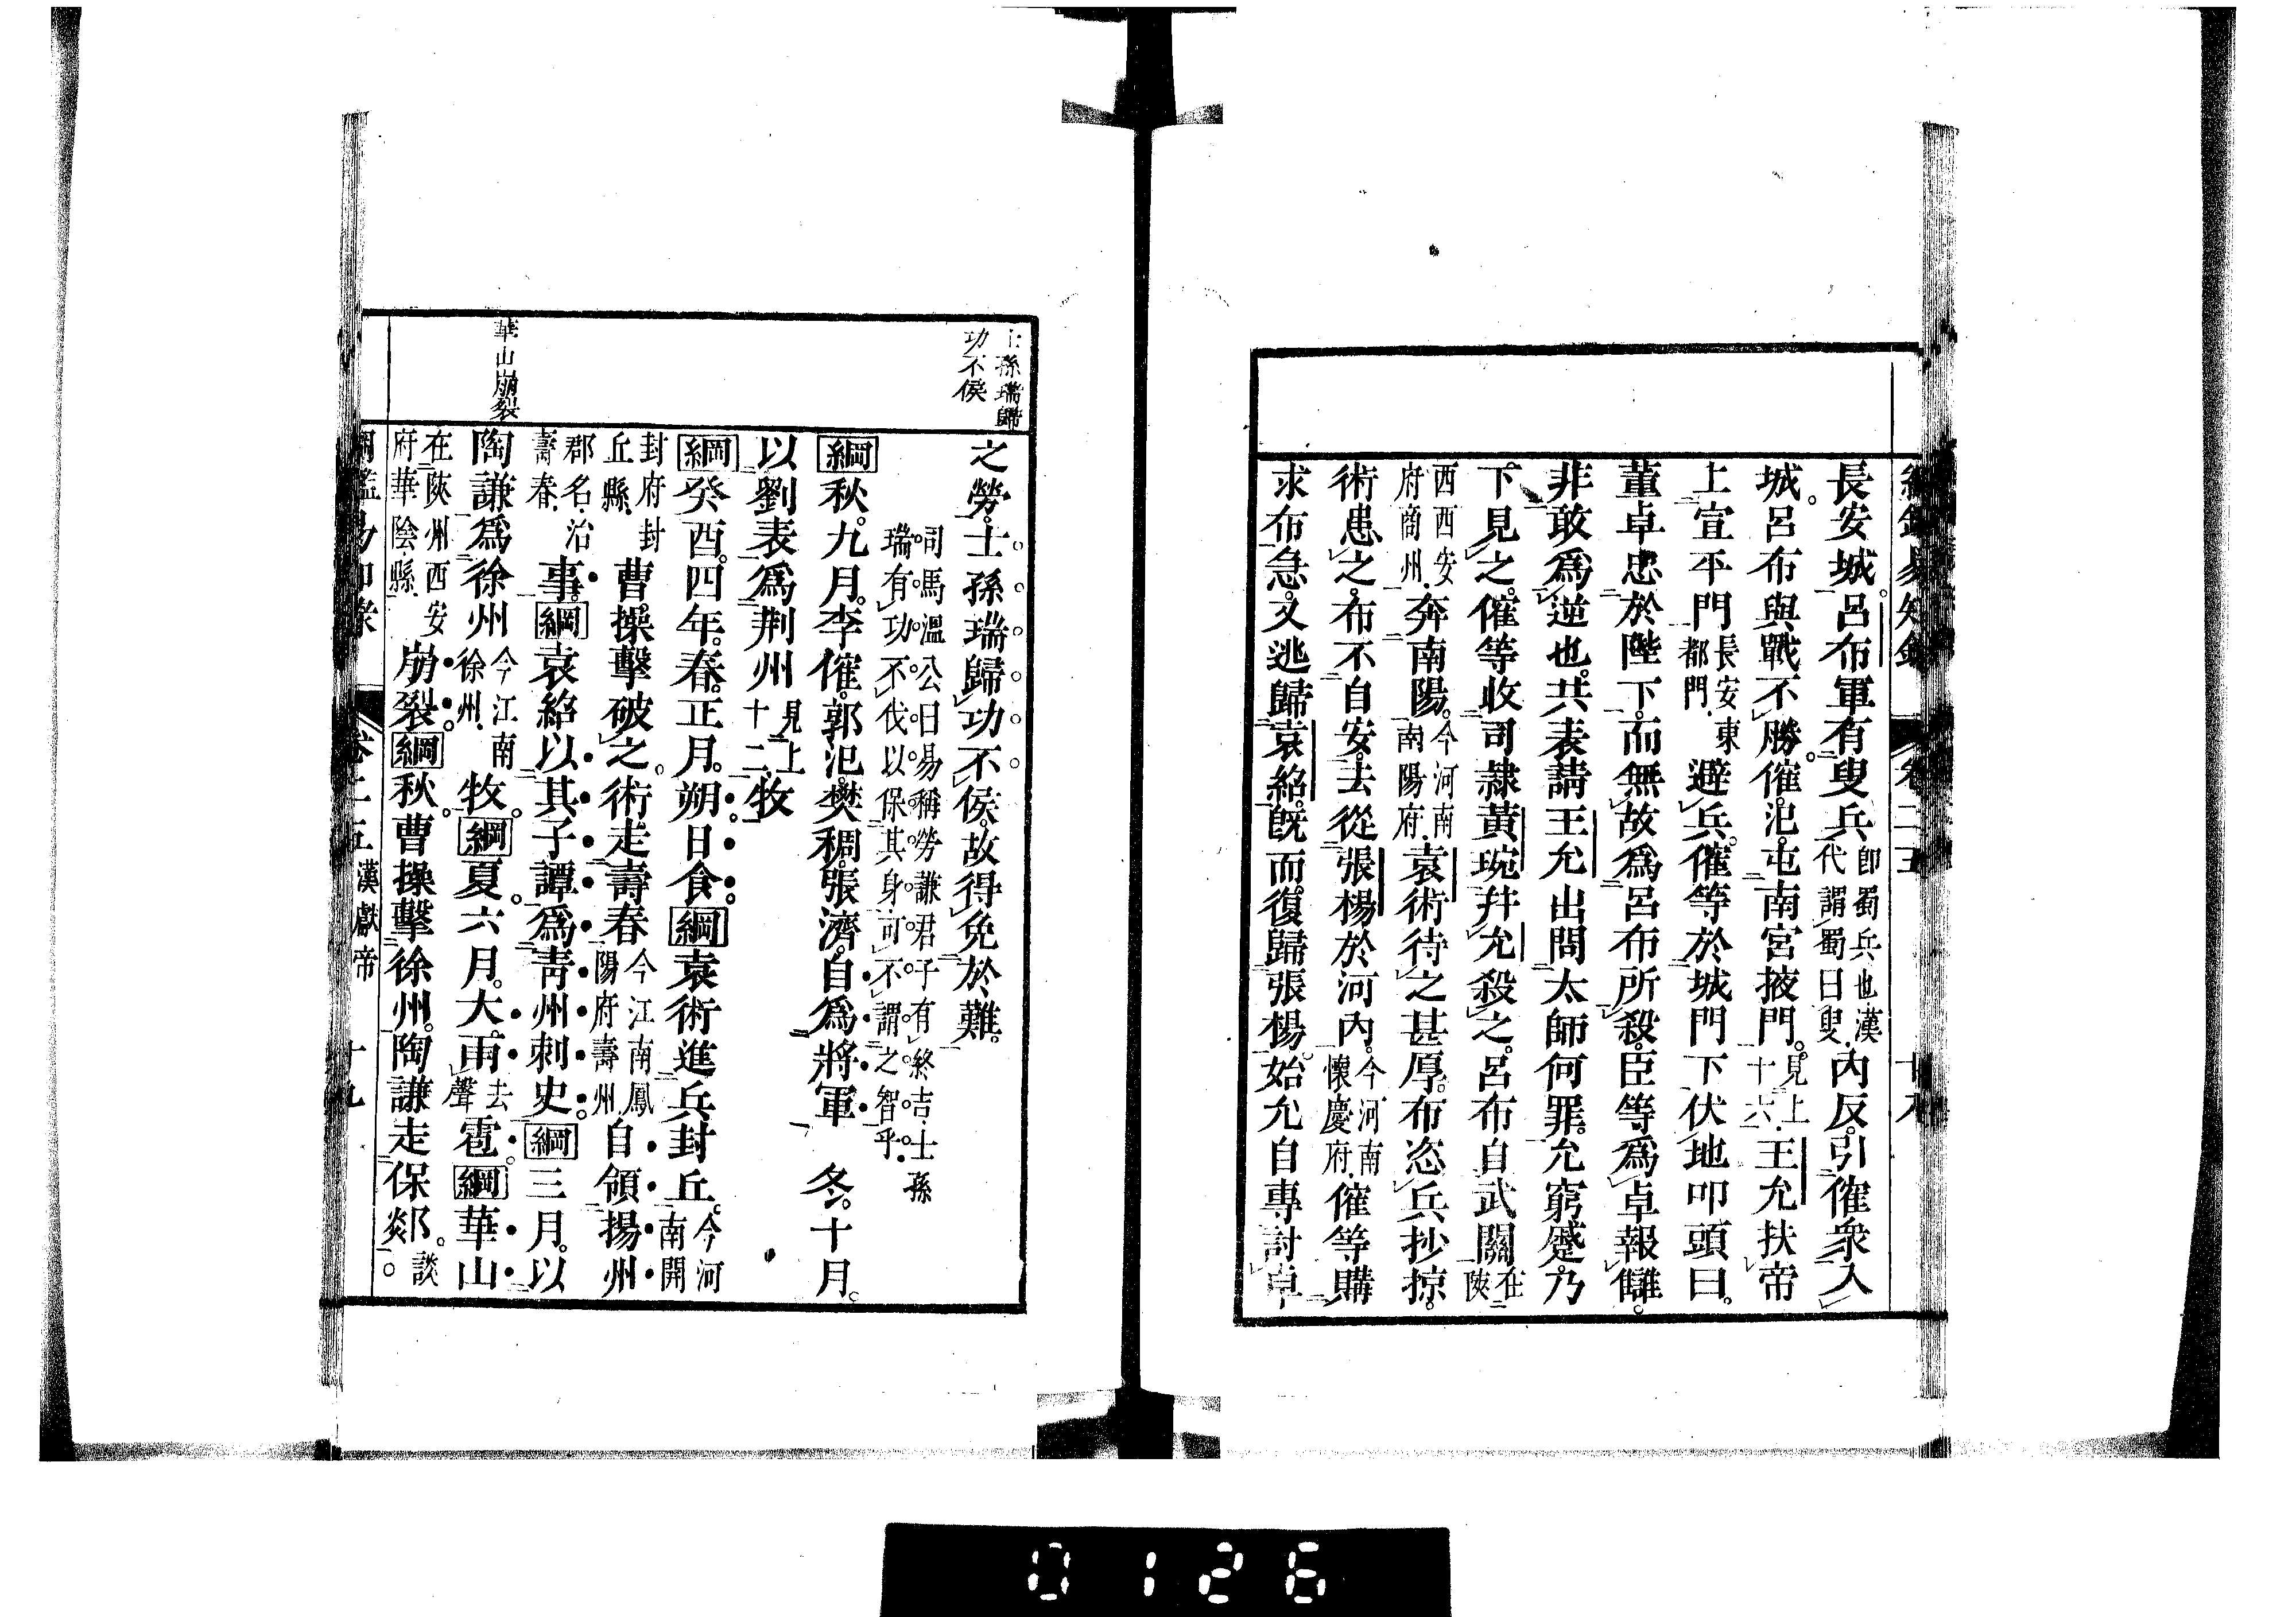 長安城。呂布軍有叟兵即蜀兵也漢代謂蜀曰叟內反。引傕衆入
城。呂布與戰不勝。傕汜屯南宮掖門。見上十六王允扶帝
上宣平門長安東都門避兵。傕等於城門下伏地叩頭曰。
董卓忠於陛下。而無故爲呂布所殺。臣等爲卓報讎。
非敢爲逆也。共表請王允出問太師何罪。允窮蹙。乃
下見之。傕等收司隸黃琬幷允殺之。呂布自武關在陝
西西安府商州奔南陽。今河南南陽府袁術待之甚厚。布恣兵抄掠。
術患之。布不自安。去從張楊於河內。今河南懷慶府傕等購
求布急。又逃歸袁紹。既而復歸張楊。始允自專討卓
士孫瑞歸
功不侯
之勞。士孫瑞歸功不侯。故得免於難。
司馬溫公曰易稱勞謙君子有終吉士孫
瑞有功不伐以保其身可不謂之智乎
綱秋。九月。李傕。郭汜。樊稠。張濟。自爲將軍 冬。十月。
以劉表爲荆州見上十二牧
綱癸酉。四年。春。正月。朔。日食。綱袁術進兵封丘。今河南開
封府封丘縣曹操擊破之。術走壽春今江南鳳陽府壽州自領揚州
郡名治壽春事。綱袁紹以其子譚爲青州刺史。綱三月。以
華山崩裂
陶謙爲徐州今江南徐州牧。綱夏。六月。大雨去聲雹。綱華山
在陝州西安府華陰縣崩裂。綱秋。曹操擊徐州。陶謙走保郯。談
卷二五 漢獻帝 十九